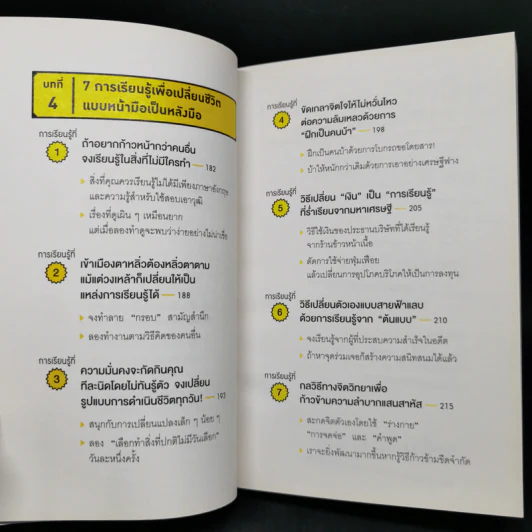 บทที่
4
7 การเรียนรู้เพื่อเปลี่ยนชีวิต
แบบหน้ามือเป็นหลังมือ
การเรียนรู้ที่
1
ถ้าอยากก้าวหน้ากว่าคนอื่น
จงเรียนรู้ในสิ่งที่ไม่มีใครทำ 182
สิ่งที่คุณควรเรียนรู้ไม่ได้มีเพียงภาษาอังกฤษ
และความรู้สำหรับใช้สอบเอาวุฒิ
เรื่องที่ดูเผิน ๆ เหมือนยาก
แต่เมื่อลองทำดูจะพบว่าง่ายอย่างไม่น่าเชื่อ
การเรียนรู้ที่
2
เข้าเมืองตาหลิ่วต้องหลิ่วตาตาม
แม้แต่วงเหล้าก็เปลี่ยนให้เป็น
แหล่งการเรียนรู้ได้ 188
จงทำลาย "กรอบ" สามัญสำนึก
ลองทำงานตามวิธีคิดของคนอื่น
การเรียนรู้ที่
3
ความมั่นคงจะกัดกินคุณ
ทีละนิดโดยไม่ทันรู้ตัว จงเปลี่ยน
รูปแบบการดำเนินชีวิตทุกวัน! 193
สนุกกับการเปลี่ยนแปลงเล็ก ๆ น้อย ๆ
ลอง "เลือกทำสิ่งที่ปกติไม่มีวันเลือก"
วันละหนึ่งครั้ง
การเรียนรู้ที่
4
ขัดเกลาจิตใจให้ไม่หวั่นไหว
ต่อความล้มเหลวด้วยการ
"ฝึกเป็นคนบ้า" 198
ฝึกเป็นคนบ้าด้วยการโบกรถขอโดยสาร!
บ้าให้หนักกว่าเดิมด้วยการเอาอย่างเศรษฐีฟาง
การเรียนรู้ที่
5
วิธีเปลี่ยน "เงิน" เป็น "การเรียนรู้"
ที่ร่ำเรียนจากมหาเศรษฐี 205
วิธีใช้เงินของประธานบริษัทที่ได้เรียนรู้
จากร้านข้าวหน้าเนื้อ
ตัดการใช้จ่ายฟุ่มเฟือย
แล้วเปลี่ยนการอุปโภคบริโภคให้เป็นการลงทุน
การเรียนรู้ที่
6
วิธีเปลี่ยนตัวเองแบบสายฟ้าแลบ
ด้วยการเรียนรู้จาก "ต้นแบบ" 210
จงเรียนรู้จากผู้ที่ประสบความสำเร็จในอดีต
ถ้าหาจุดร่วมเจอก็สร้างความสนิทสนมได้แล้ว
การเรียนรู้ที่
7
กลวิธีทางจิตวิทยาเพื่อ
ก้าวข้ามความลำบากแสนสาหัส 215
สะกดจิตตัวเองโดยใช้ "ร่างกาย"
"การจดจ่อ" และ "คำพูด"
เราจะยิ่งพัฒนามากขึ้นหากรู้วิธีก้าวข้ามขีดจำกัด